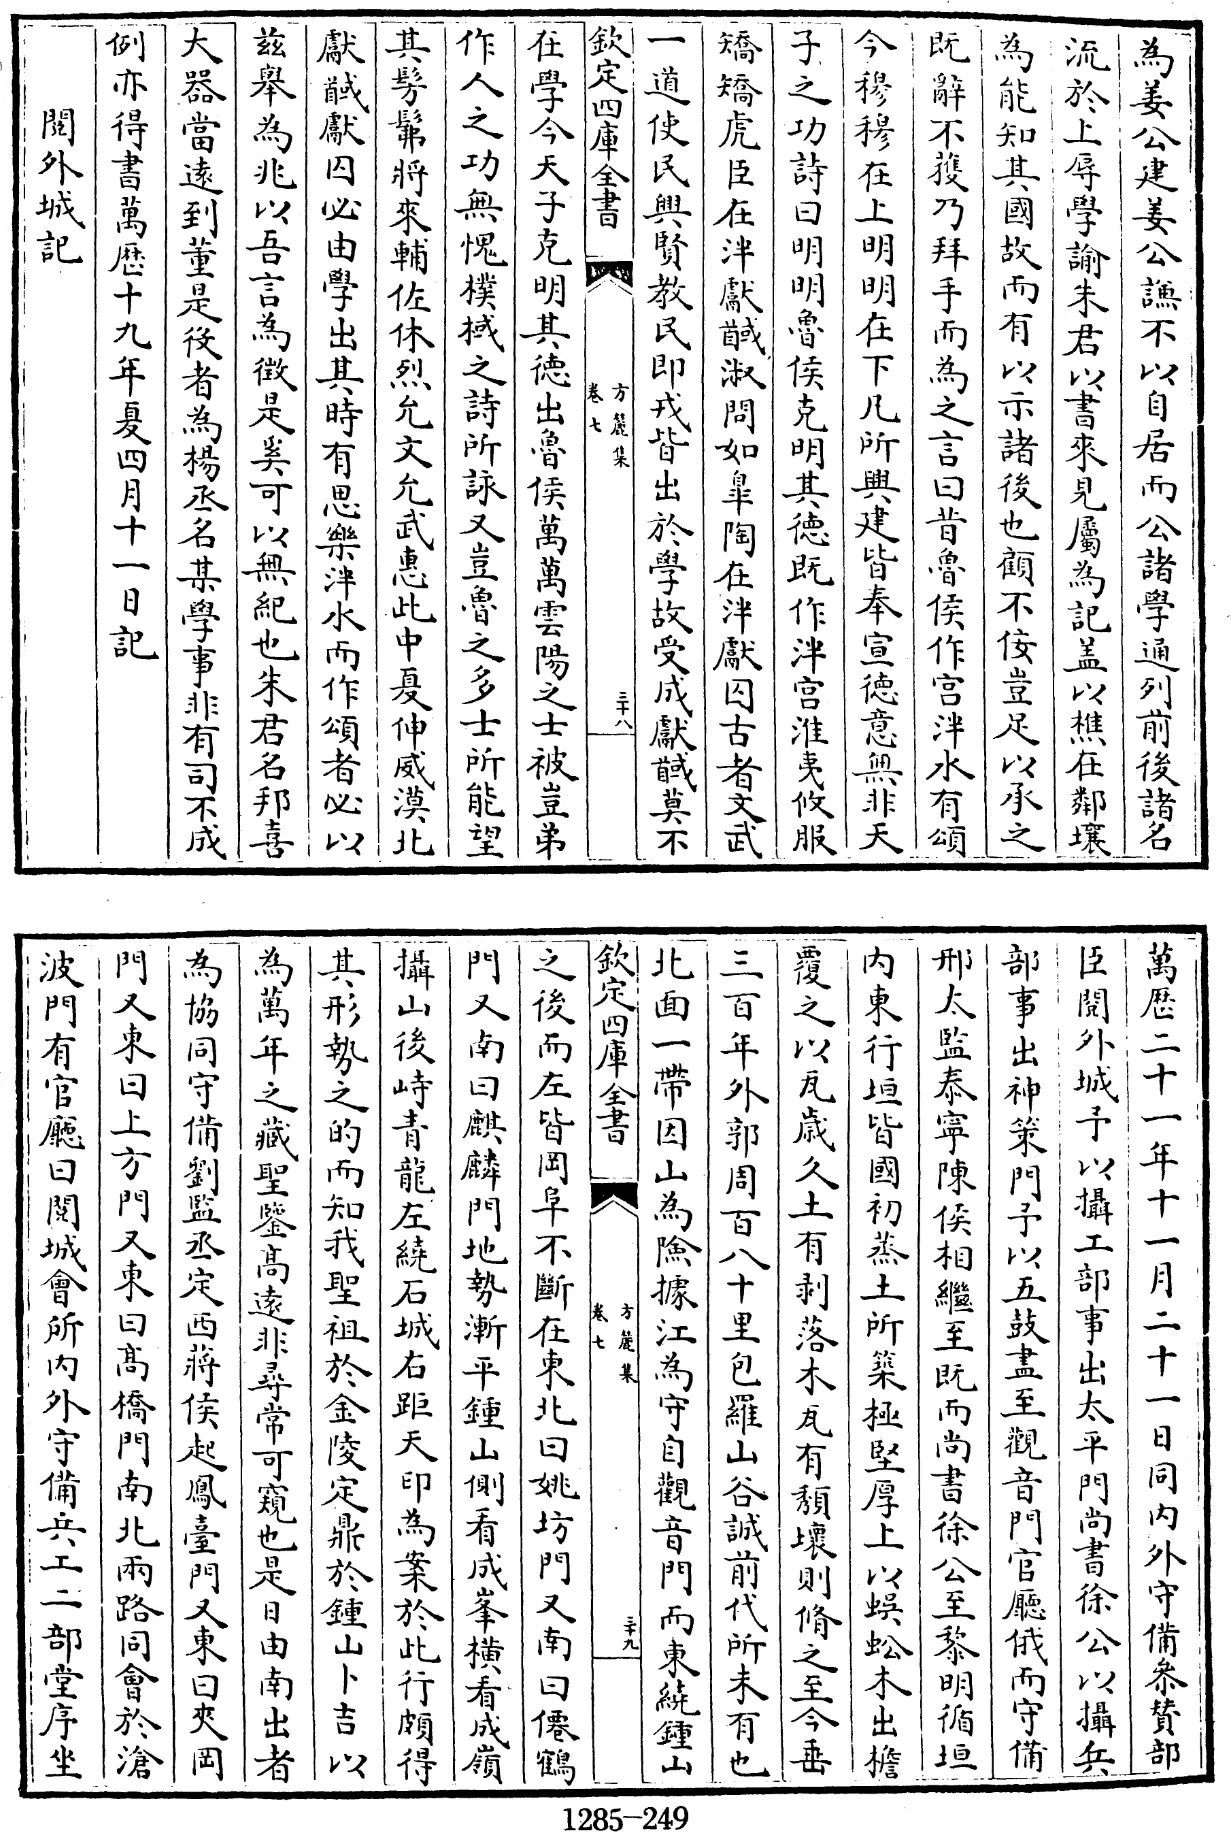 為姜公建姜公謙不以自居而公諸學通列前後諸名
流於上辱學諭朱君以書來見屬為記盖以樵在鄰壤
為能知其國故而有以示諸後也顧不佞豈足以承之
既辭不獲乃拜手而為之言曰昔魯侯作宮泮水有頌
今穆穆在上明明在下凡所興建皆奉宣德意無非天
子之功詩曰明明魯侯克明其德既作泮宮淮夷攸服
矯矯虎臣在泮獻馘淑問如臯陶在泮獻囚古者文武
一道使民興賢教民即戎皆出於學故受成獻馘莫不
欽定四庫全書
方麓集
卷七
三十八
在學今天子克明其德出魯侯萬萬雲陽之士被豈弟
作人之功無愧樸棫之詩所詠又豈魯之多士所能望
其髣髴將來輔佐休烈允文允武惠此中夏伸威漠北
獻馘獻囚必由學出其時有思樂泮水而作頌者必以
兹舉為兆以吾言為徵是奚可以無紀也朱君名邦喜
大器當遠到董是役者為楊丞名某學事非有司不成
例亦得書萬歷十九年夏四月十一日記
閱外城記
萬歷二十一年十一月二十一日同内外守備叅贊部
臣閱外城予以攝工部事出太平門尚書徐公以攝兵
部事出神策門予以五鼓盡至觀音門官廳俄而守備
邢太監泰寧陳侯相繼至既而尚書徐公至黎明循垣
内東行垣皆國初蒸土所築極堅厚上以蜈蚣木出檐
覆之以瓦歲久土有剥落木瓦有頽壞則脩之至今垂
三百年外郭周百八十里包羅山谷誠前代所未有也
北面一帶因山為險據江為守自觀音門而東繞鍾山
欽定四庫全書
方麓集
卷七
三十九
之後而左皆岡阜不斷在東北曰姚坊門又南曰僊鶴
門又南曰麒麟門地勢漸平鍾山側看成峯横看成嶺
攝山後峙青龍左繞石城右距天印為案於此行頗得
其形勢之的而知我聖祖於金陵定鼎於鍾山卜吉以
為萬年之藏聖鑒髙遠非尋常可窺也是日由南出者
為協同守備劉監丞定西蔣侯起鳳臺門又東曰夾岡
門又東曰上方門又東曰髙橋門南北兩路同會於滄
波門有官廳曰閱城會所内外守備兵工二部堂序坐
1285-249